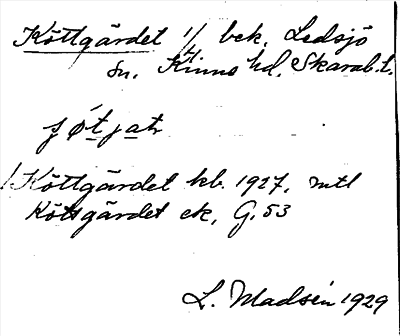 Köttgärdet 1/4 bek, Ledsjö
sn. Kinne hd, Skarab.l.
1 Köttgärdet kb. 1927, mtl
Köttsgärdet ek, G. 53
L. Madsén 1929